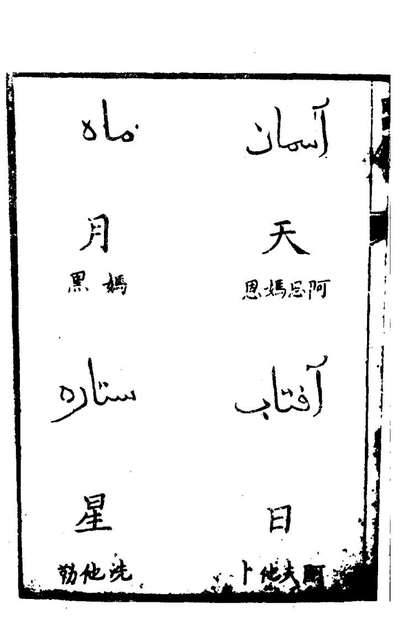 آسمان
天
阿思媽恩
آفتاب
日
阿夫他卜
ماه
月
媽黑
ستاره
星
洗他勒